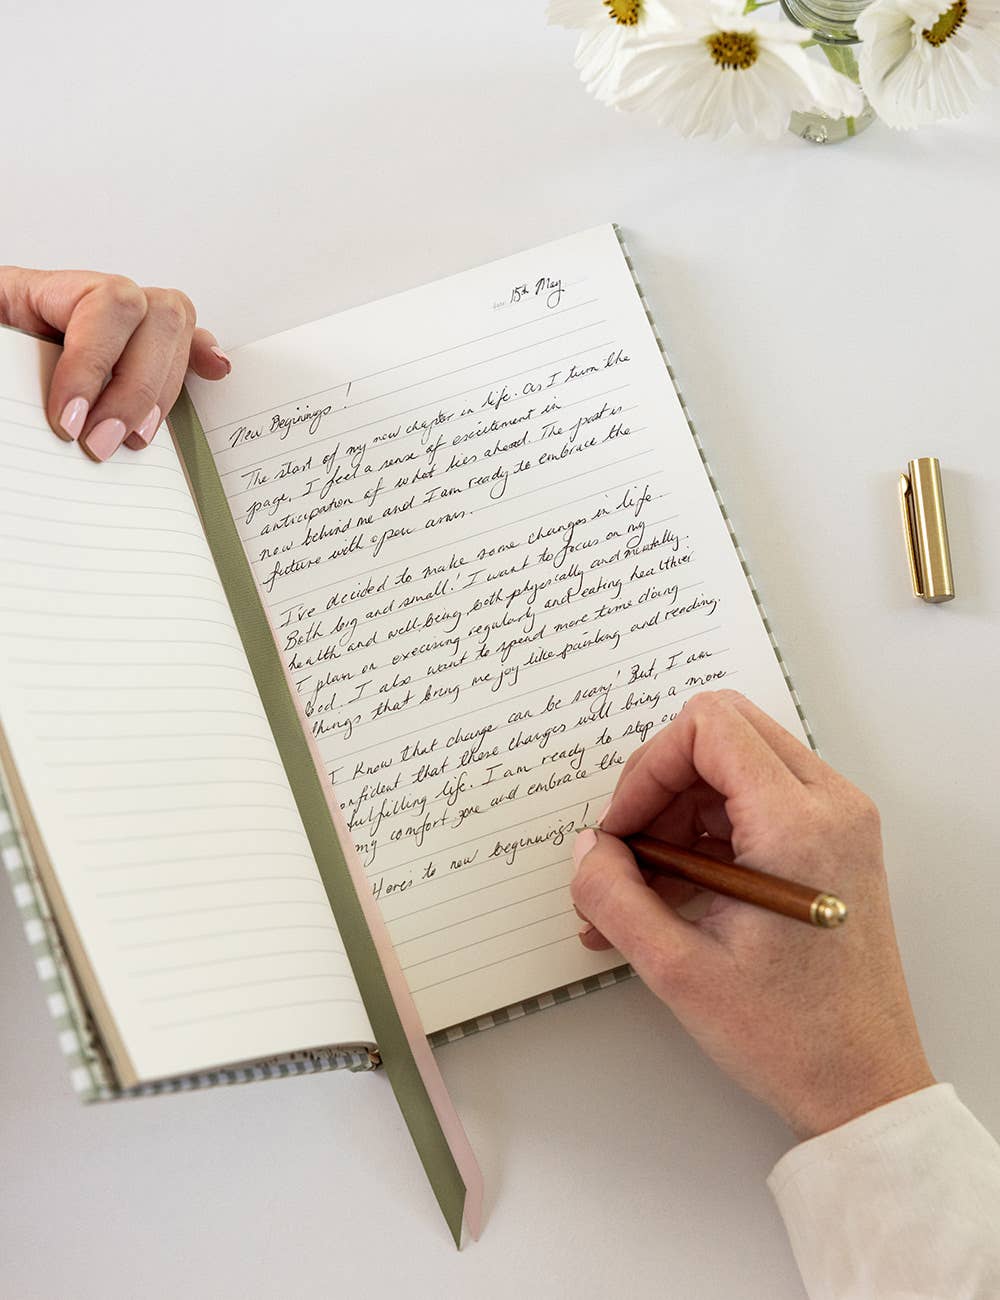 date: 15th May
New Beginings!
The start of my new chapter in life. As I turn the
page, I feel a sense of excitement in
anticipation of what lies ahead. The past is
now behind me and I am ready to embrace the
future with open arms.
I've decided to make some changes in life.
Both big and small! I want to focus on my
health and well-being both physically and mentally.
I plan on execising regularly and eating healthier
food. I also want to spend more time doing
things that bring me joy like painting and reading.
I know that change can be scary! But, I am
onfident that these changes will bring a more
fulfilling life. I am ready to step ou
my comfort zone and embrace the
Here's to new beginnings!